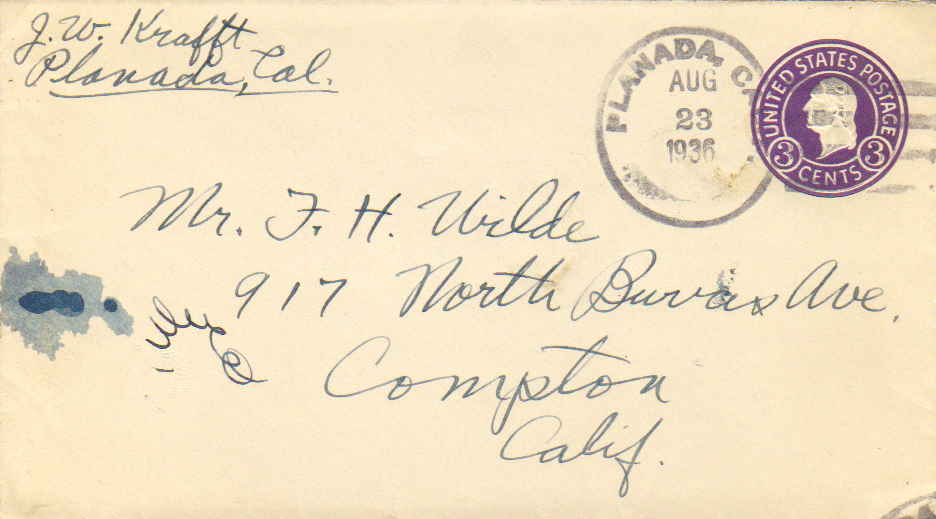 J. W. Krafft
Planada, Cal.
PLANADA, C
AUG
23
1936
UNITED STATES POSTAGE
3 CENTS 3
Mr. F. H. Wilde
917 North Ave.
Compton
Calif.